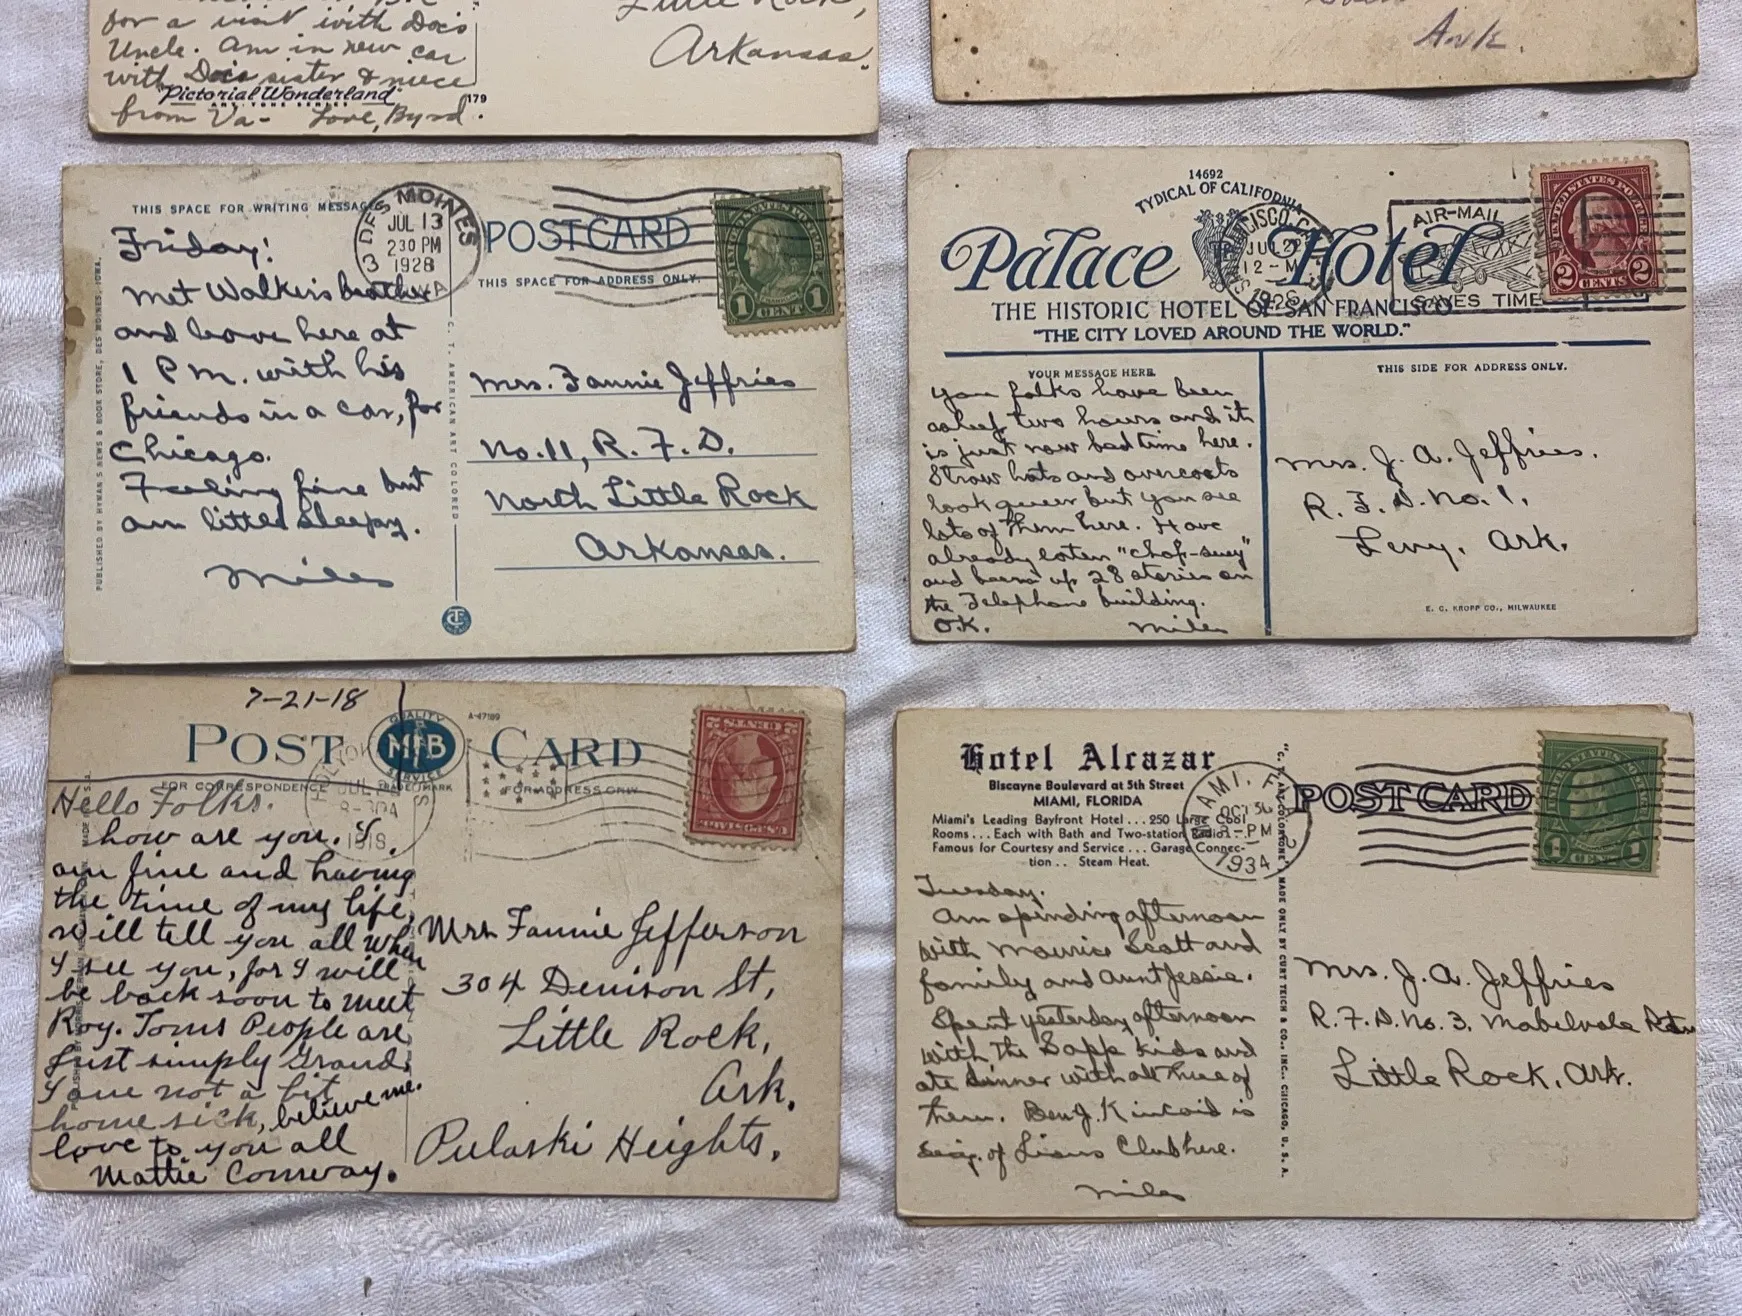 for a visit with Doc's
Uncle. Am in new car
with Doc's sister & niece
Pictorial Wonderland
ART TONE SERIES
179
from Va- Love, Byrd.
Little Rock,
Arkansas.
Ark.
THIS SPACE FOR WRITING MESSAGE
DES MOINES
JUL 13
2 30 PM
1928
3
IOWA
POST CARD
THIS SPACE FOR ADDRESS ONLY.
UNITED STATES POSTAGE
FRANKLIN
1 CENT 1
PUBLISHED BY HYMAN'S NEWS & BOOK STORE, DES MOINES, IOWA.
C. T. AMERICAN ART COLORED
Friday!
Met Walker's brother
and leave here at
1 P M. with his
friends in a car, for
Chicago.
Feeling fine but
am little sleepy.
Miles
Mrs. Fannie Jeffries
No. 11, R. F. D.
North Little Rock
Arkansas.
CT
14692
TYPICAL OF CALIFORNIA
Palace Hotel
THE HISTORIC HOTEL OF SAN FRANCISCO
"THE CITY LOVED AROUND THE WORLD."
12-M
AIR-MAIL
SAVES TIME
UNITED STATES POSTAGE
2 CENTS 2
YOUR MESSAGE HERE.
THIS SIDE FOR ADDRESS ONLY.
You folks have been
asleep two hours and it
is just now bed time here.
Straw hats and overcoats
look queer but you see
lots of them here. Have
already eaten "chop-suey"
and been up 28 stories on
the Telephone building.
O.K. Miles
Mrs. J. A. Jeffries.
R. F. D. No. 1,
Levy, Ark.
E. C. KROPP CO., MILWAUKEE
7-21-18
POST CARD
QUALITY
MFB
SERVICE
TRADE MARK
A-47189
FOR CORRESPONDENCE
FOR ADDRESS ONLY
JUL
8-30A
1918
U.S. POSTAGE
2 CENTS 2
MADE IN U.S.A.
Hello Folks.
how are you. I
am fine and having
the time of my life,
will tell you all when
I see you, for I will
be back soon to meet
Roy. Toms People are
Just simply Grand.
I am not a bit
home sick, believe me.
love to you all
Mattie Conway.
Mrs Fannie Jefferson
304 Denison St,
Little Rock,
Ark.
Pulaski Heights.
Hotel Alcazar
Biscayne Boulevard at 5th Street
MIAMI, FLORIDA
Miami's Leading Bayfront Hotel . . . 250 Large Cool
Rooms . . . Each with Bath and Two-station Radio . .
Famous for Courtesy and Service . . . Garage Connec-
tion . . Steam Heat.
MIAMI, FLA.
OCT 30
PM
1934
POST CARD
1 CENT 1
"C. T. ART-COLORTONE" MADE ONLY BY CURT TEICH & CO., INC., CHICAGO, U. S. A.
Tuesday.
Am spending afternoon
with Maurice Scott and
family and Aunt Jessie.
Spent yesterday afternoon
with the Sapp kids and
ate dinner with all three of
them. Ben J. Kincaid is
Secy. of Lions Club here.
Miles
Mrs. J. A. Jeffries
R. F. D. No. 3, Mabelvale
Little Rock, Ark.